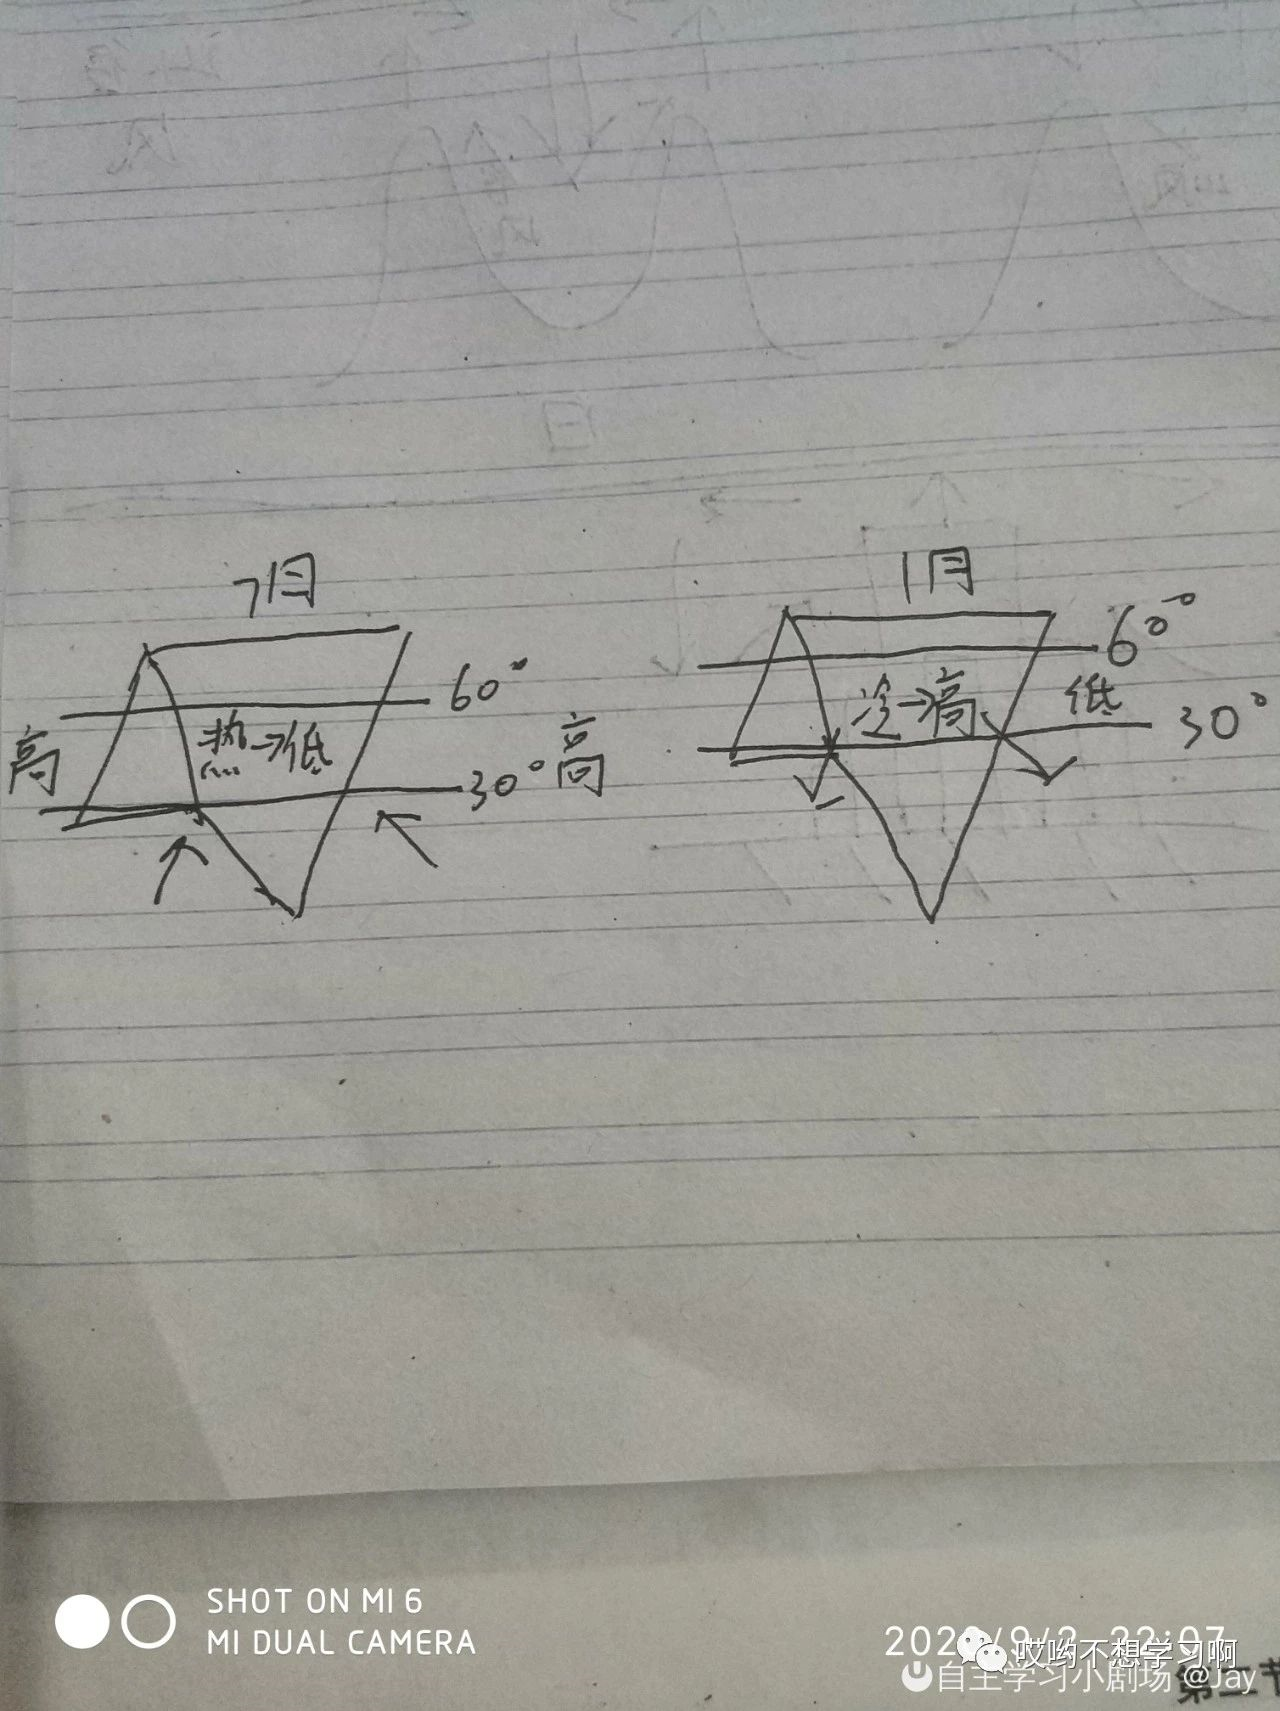 7月
1月
60°
60°
热→低
高
30°
高
冷→高
低
30°
日
SHOT ON MI 6
MI DUAL CAMERA
哎哟不想学习啊
自主学习小剧场 @Jay
第二节